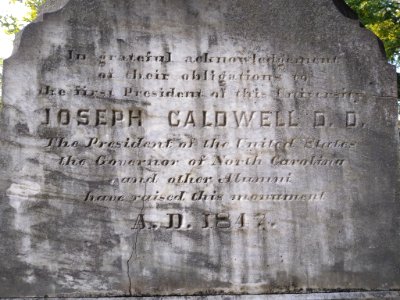 In grateful acknowledgement
of their obligations to
the first President of this University
JOSEPH CALDWELL D. D.
The President of the United States
the Governor of North Carolina
and other Alumni
have raised this monument
A. D. 1847.